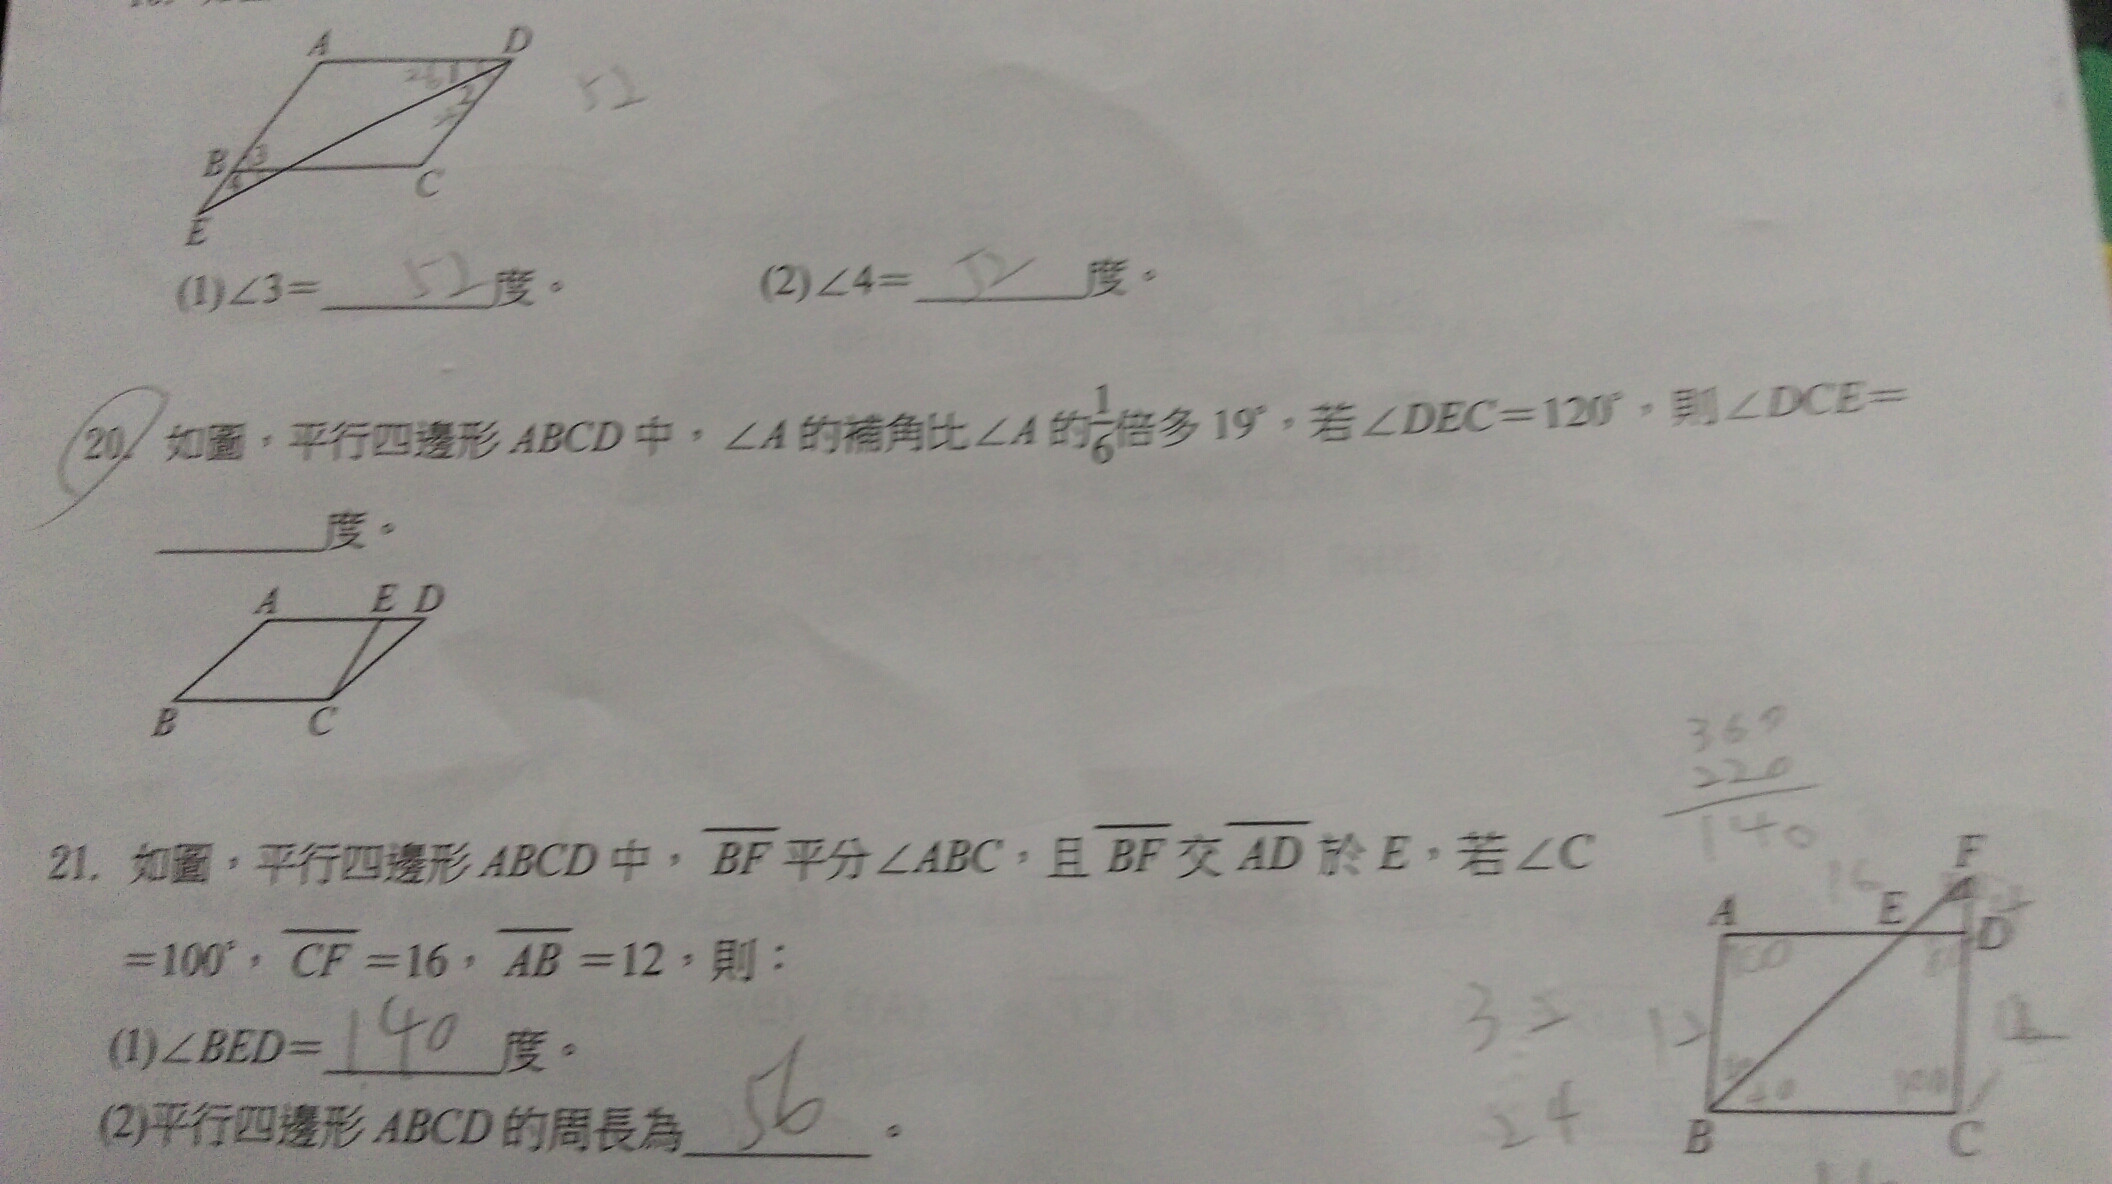 A D
26 1
2
52
B 3
4
C
E
(1)∠3= 52 度。 (2)∠4= 52 度。
20. 如圖,平行四邊形 ABCD 中,∠A 的補角比∠A 的1/6倍多 19°,若∠DEC=120°,則∠DCE=
______度。
A E D
B C
360
220
140
21. 如圖,平行四邊形 ABCD 中,BF 平分∠ABC,且 BF 交 AD 於 E,若∠C
=100°,CF=16,AB=12,則:
(1)∠BED= 140 度。
(2)平行四邊形 ABCD 的周長為 56 。
F
16
A E D
100
12
32
24
100
B C